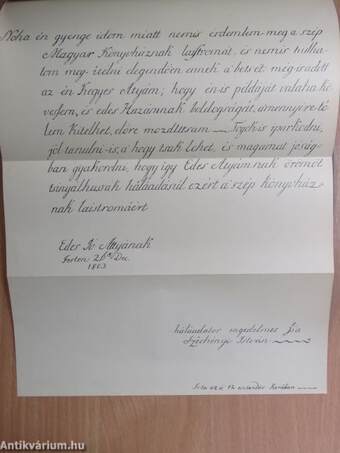 Nóha én gyenge idöm miatt nemis érdemlem meg a szép
Magyar Könyvháznak lajstromát és nemis tudha-
tom meg ítélni elegendöen ennek a betsét, mégis adott
az én Kegyes Atyám; hogy én is példáját valaha kö-
vessem, és édes Hazámnak boldogságát, amennyere tö-
lem kitelhet, elöre mozdittsam Fogok is iparkodni,
jól tanulni is, a hogy tsak lehet, és magamat jóság-
ban gyakorolni, hogy így Édes Atyámnak örömet
tsinyálhassak háláadásúl ezért a szép Könyvház-
nak laistromáért
Édes Atyának
Dec.
1803
háláadatos engedelmes fia
Széchényi István
Korában
Antikvárium.hu